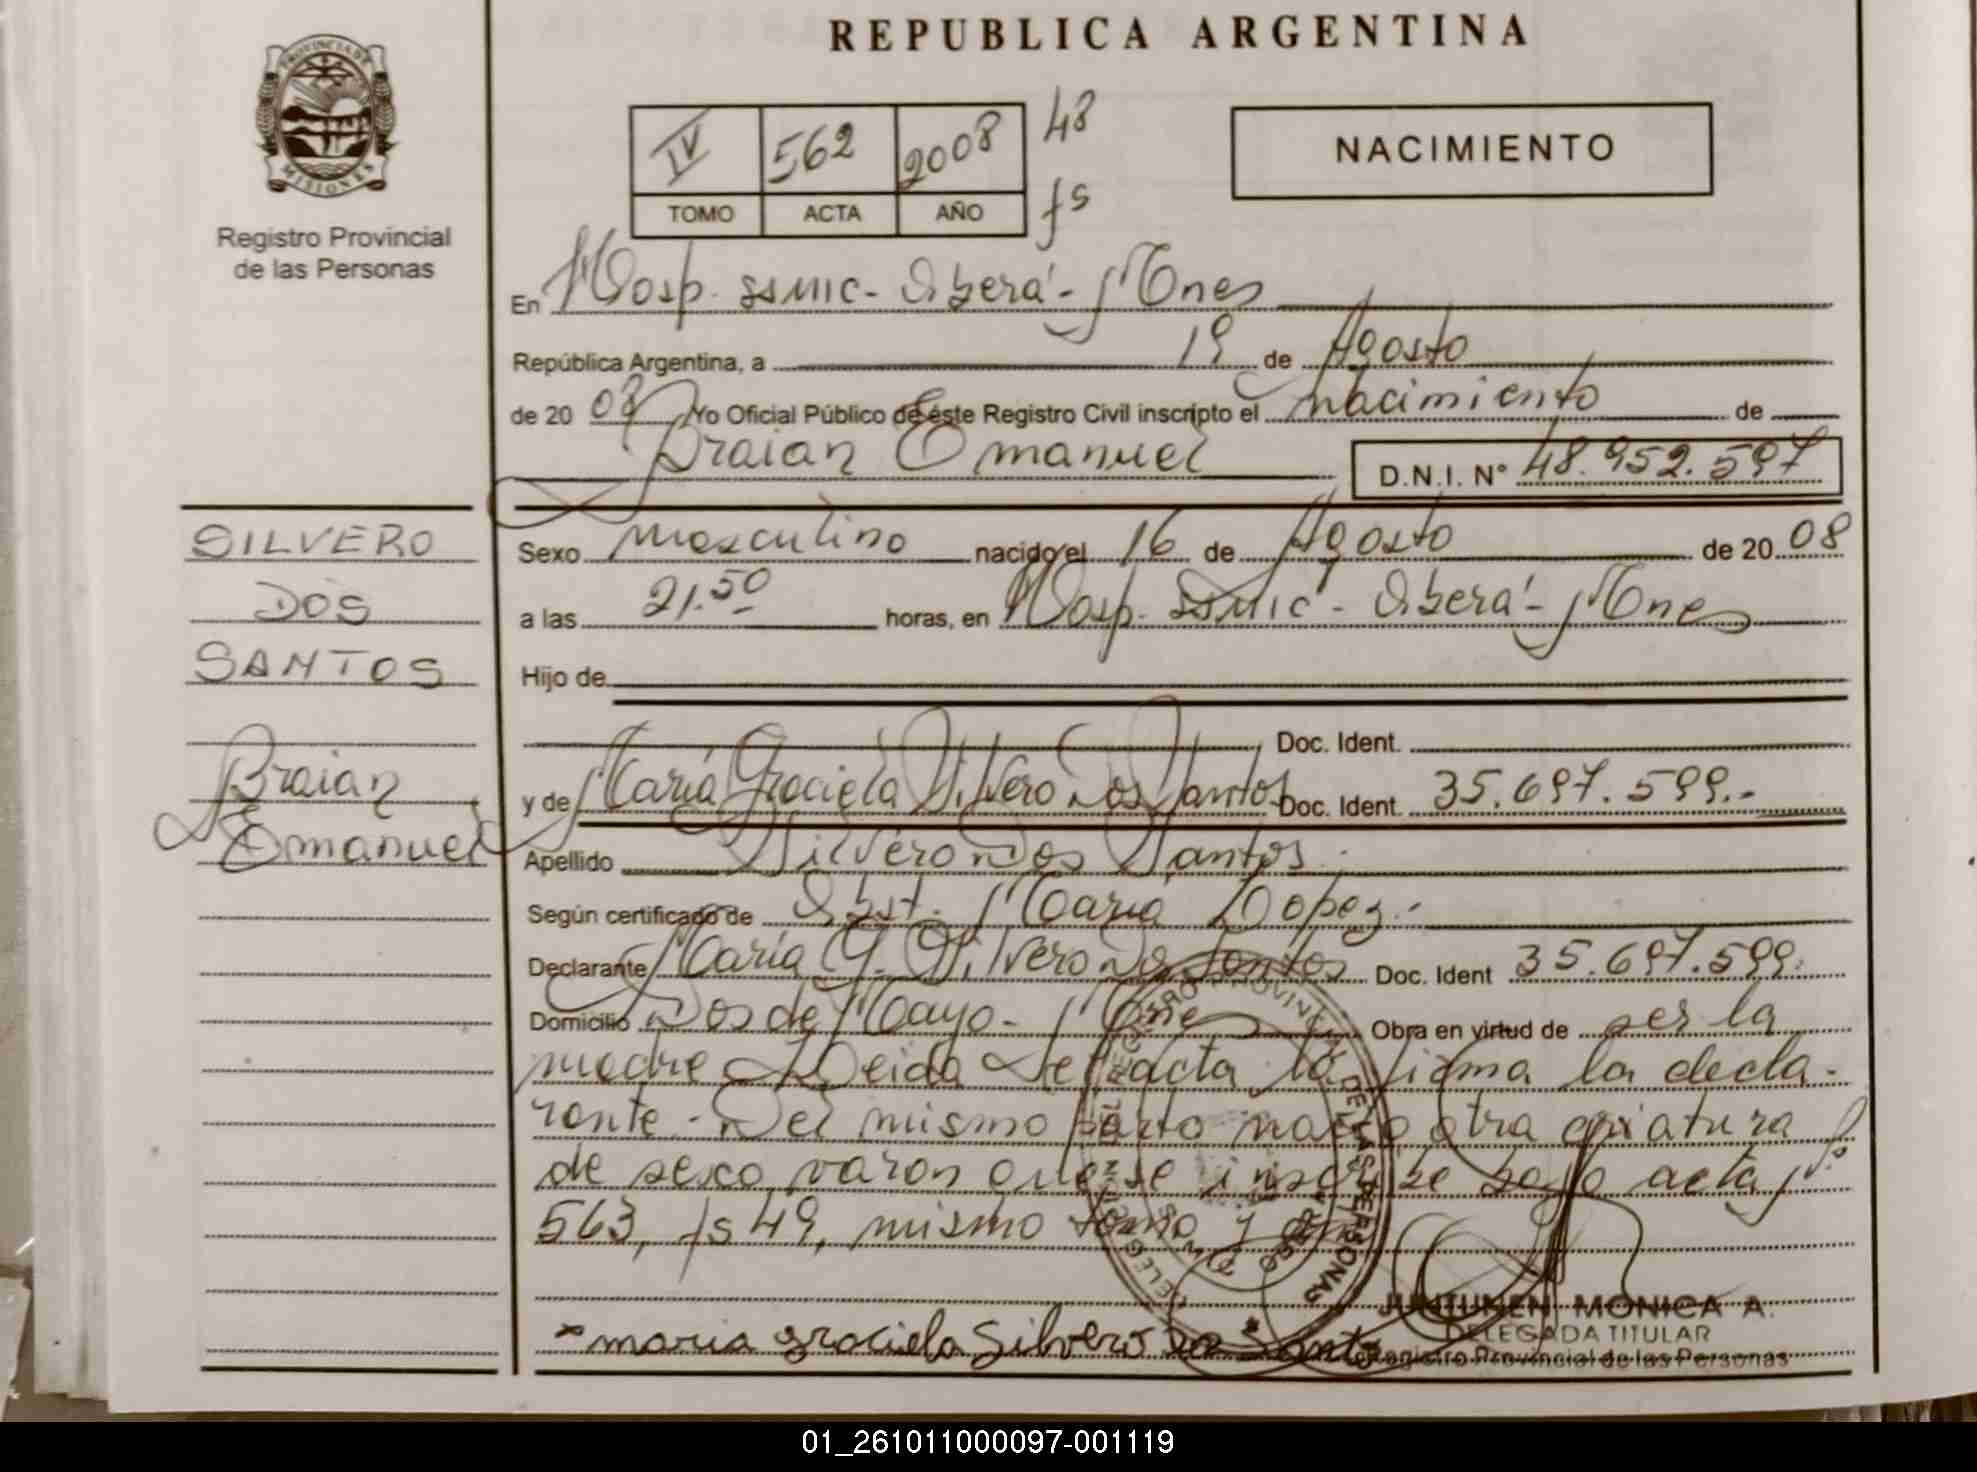 REPUBLICA ARGENTINA
PROVINCIA DE
MISIONES
Registro Provincial
de las Personas
IV 562 2008 48
TOMO ACTA AÑO fs
NACIMIENTO
En Hosp. SSMIC - Oberá - Mnes
República Argentina, a 19 de Agosto
de 20 08 Yo Oficial Público de éste Registro Civil inscripto el nacimiento de
Braian Emanuel D.N.I. N° 48.952.597
SILVERO
DOS
SANTOS
Braian
Emanuel
Sexo masculino nacido el 16 de Agosto de 20 08
a las 21.50 horas, en Hosp. SSMIC - Oberá - Mnes
Hijo de
Doc. Ident.
y de María Graciela Silvero Dos Santos Doc. Ident. 35.697.599.-
Apellido Silvero Dos Santos.
Según certificado de Obst. María Lopez.-
Declarante María G. Silvero Dos Santos Doc. Ident 35.697.599.
Domicilio Dos de Mayo - Mnes Obra en virtud de ser la
madre Leida el acta la firma la decla-
rante - Del mismo parto nació otra criatura
de sexo varon que se inscribe bajo acta
563, fs 49, mismo tomo y año
maria graciela Silvero Do Santo
REGISTRO PROVINCIAL DE LAS PERSONAS
JUNTUNEN MONICA A.
DELEGADA TITULAR
Registro Provincial de las Personas
01_261011000097-001119